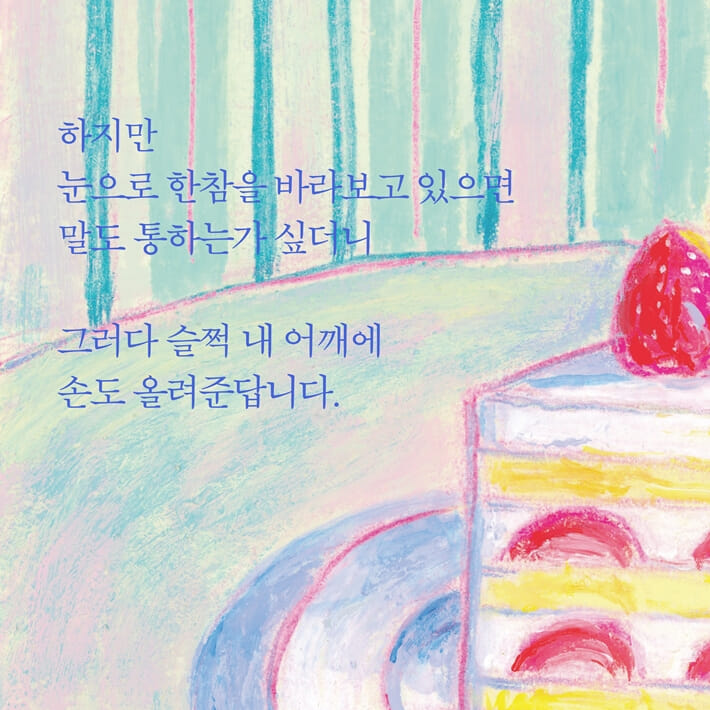 하지만
눈으로 한참을 바라보고 있으면
말도 통하는가 싶더니
그러다 슬쩍 내 어깨에
손도 올려준답니다.